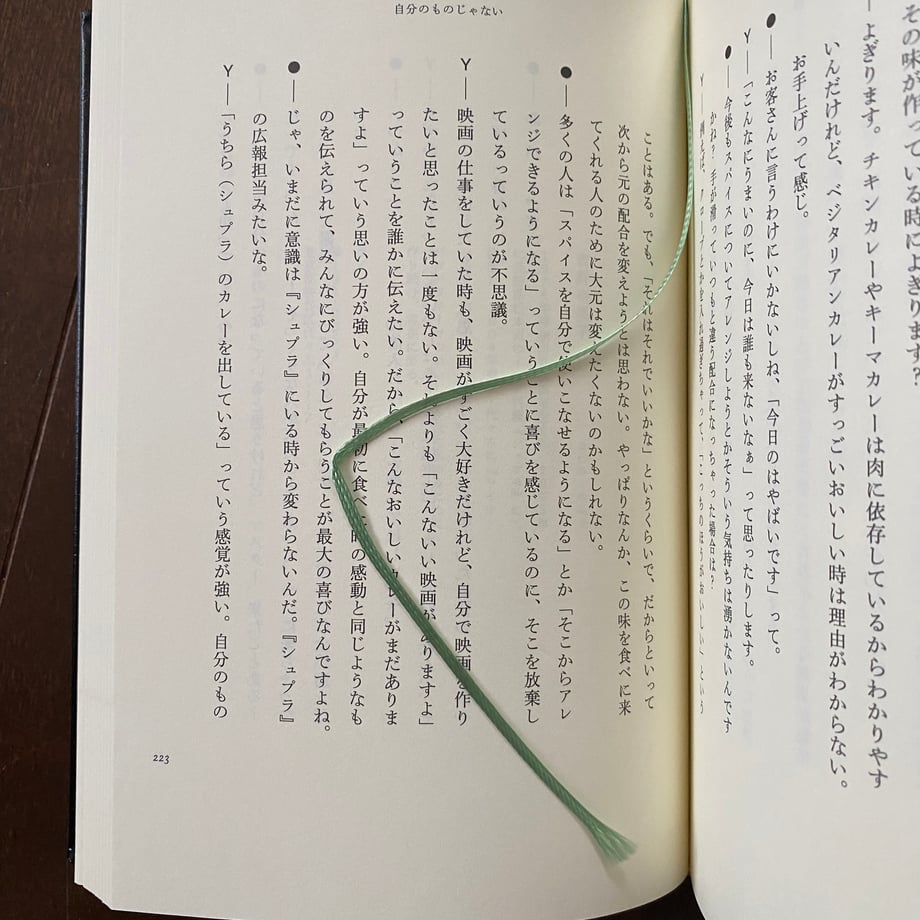 その味が作っている時によぎります？
よぎります。チキンカレーやキーマカレーは肉に依存しているからわかりやす
いんだけれど、ベジタリアンカレーがすっごいおいしい時は理由がわからない。
お手上げって感じ。
●――お客さんに言うわけにいかないしね、「今日のはやばいです」って。
Y――「こんなにうまいのに、今日は誰も来ないなぁ」って思ったりします。
●――今後もスパイスについてアレンジしようとかそういう気持ちは湧かないんです
かね？ 手が滑っていつもと違う配合になっちゃった場合は？
Y――例えば、クローブとか入れ過ぎちゃって、「こっちのほうがおいしい」という
ことはある。でも、「それはそれでいいかな」というくらいで、だからといって
次から元の配合を変えようとは思わない。やっぱりなんか、この味を食べに来
てくれる人のために大元は変えたくないのかもしれない。
●――多くの人は「スパイスを自分で使いこなせるようになる」とか「そこからアレ
ンジできるようになる」っていうことに喜びを感じているのに、そこを放棄し
ているっていうのが不思議。
Y――映画の仕事をしていた時も、映画がすごく大好きだけれど、自分で映画を作り
たいと思ったことは一度もない。それよりも「こんないい映画がありますよ」
っていうことを誰かに伝えたい。だから、「こんなおいしいカレーがまだありま
すよ」っていう思いの方が強い。自分が最初に食べた時の感動と同じようなも
のを伝えられて、みんなにびっくりしてもらうことが最大の喜びなんですよね。
●――じゃ、いまだに意識は『シュプラ』にいる時から変わらないんだ。『シュプラ』
の広報担当みたいな。
Y――「うちら（シュプラ）のカレーを出している」っていう感覚が強い。自分のもの
自分のものじゃない
223